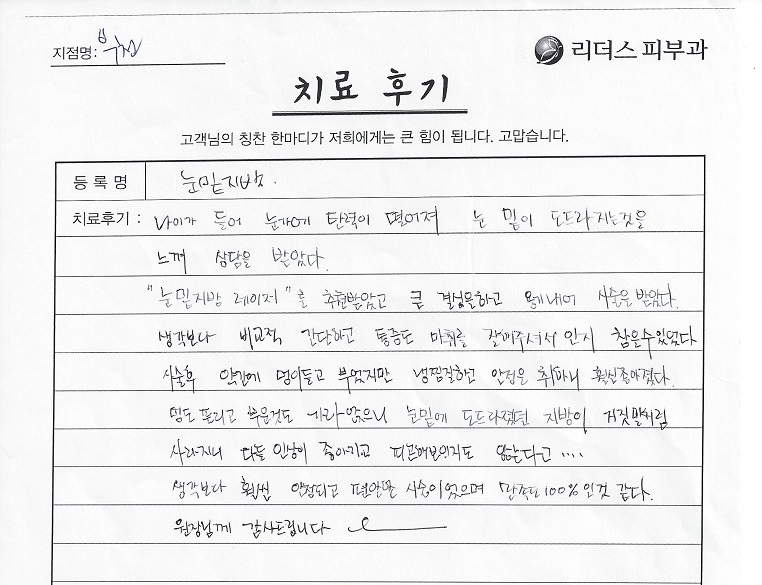 지점명: 부천
리더스 피부과
치료 후기
고객님의 칭찬 한마디가 저희에게는 큰 힘이 됩니다. 고맙습니다.
등 록 명 눈밑지방.
치료후기 : 나이가 들어 눈가에 탄력이 떨어져 눈 밑이 도드라지는것을
느껴 상담을 받았다.
"눈밑지방 레이저"를 추천받았고 큰 결심을하고 용기내어 시술은 받았다.
생각보다 비교적 간단하고 통증도 마취를 잘해주셔서 인지 참을수있었다
시술후 약간에 멍이들고 부었지만 냉찜질하고 안정을 취하니 훨신좋아졌다.
멍도 풀리고 부운것도 가라앉으니 눈밑에 도드라졌던 지방이 거짓말처럼
사라지니 다들 인상이 좋아지고 피곤해보이지도 않는다고 ....
생각보다 훨씬 안정되고 편안한 시술이었으며 만족도100%인것 같다.
원장님께 감사드립니다